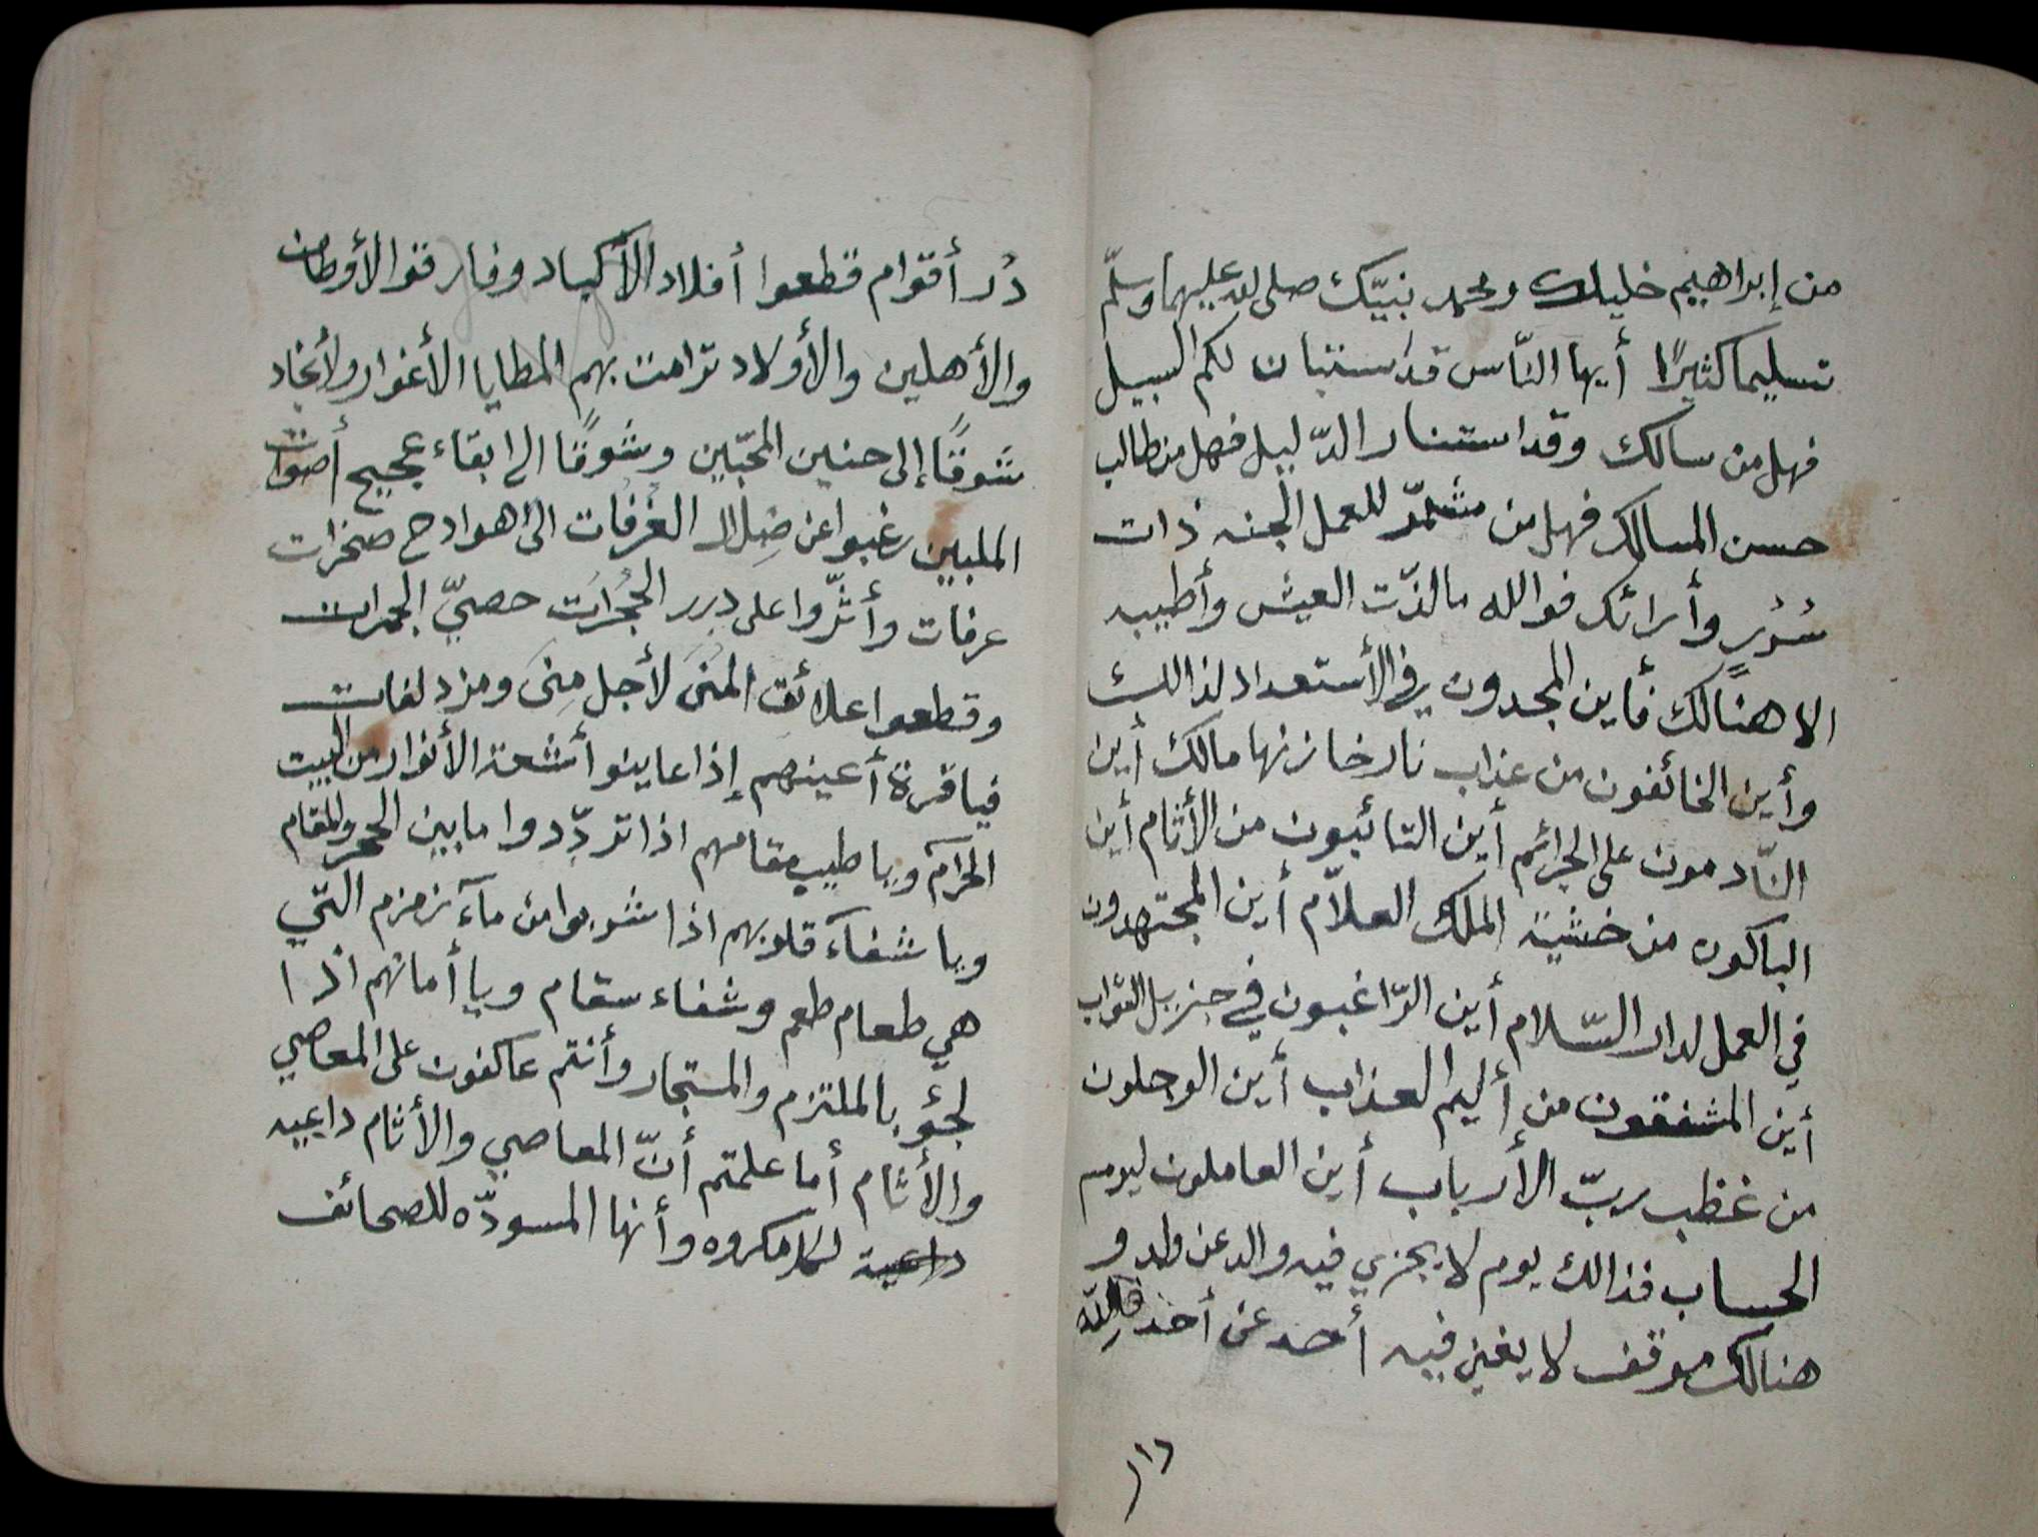 من إبراهيم خليلك ومحمد نبيّك صلى الله عليهما وسلّم
تسليما كثيرًا أيها النّاس قد استبان لكم السبيل
فهل من سالك وقد استنار الدّليل فهل من طالب
حسن المسالك فهل من مشمّر للعمل الجنه ذات
سُرُرٍ وأرائك فوالله مالذّت العيش وأطيبه
الا هنالك فأين المجدون في الأستعداد لذالك
وأين الخائفون من عذاب نار خازنها مالك أين
النّادمون على الجرائم أين التائبون من الأثام أين
الباكون من خشية الملك العلاّم أين المجتهدون
في العمل لدار السّلام أين الرّاغبون في جزيل الثواب
أين المشفقون من أليم العذاب أين الوجلون
من غظب ربّ الأرباب أين العاملون ليوم
الحساب فذالك يوم لا يجزي فيه والد عن ولد و
هنالك موقف لا يغني فيه أحد عن أحد فللّه
١٦
دُر أقوام قطعوا أفلاد الأكباد وفارقوا الأوطان
والأهلين والأولاد ترامت بهم المطايا الأغوار ولأنجاد
شوقًا إلى حنين المحبّين وشوقًا الى ابقاء عجيج أصوات
الملبين رغبوا عن ضِلال الغُرفات الى هوادح صخرات
عرفات وأثّروا على درر الحُجُرات حصيّ الجمرات
وقطعوا علائق المنى لأجل مِنى ومزدلفات
فيا قرة أعينهم إذا عاينو أشعة الأنوار من البيت
الحرام ويا طيب مقامهم اذا تردّدوا ما بين الحجر والمقام
ويا شفآء قلوبهم اذا شربوا من مآء زمزم التي
هي طعام طعم وشفاء سقام ويا أمانهم اذا
لجئو بالملتزم والمستجار وأنتم عاكفون على المعاصي
والأثام أما علمتم أنّ المعاصي والأثام داعيه
داعية لكل مكروه وأنها المسودّه للصحائف